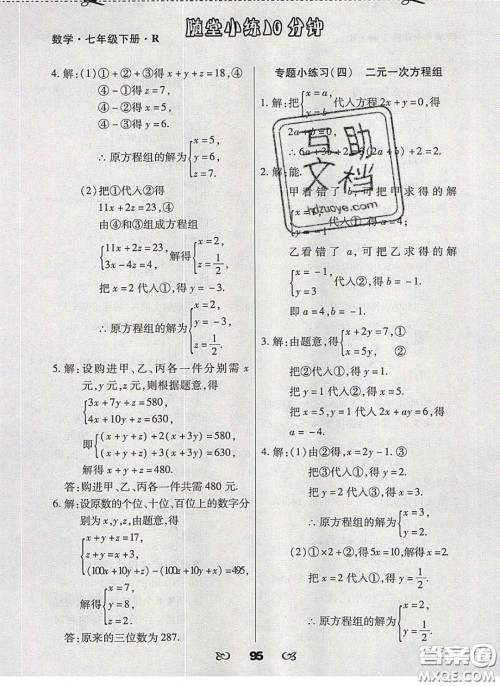 数学·七年级下册·R
随堂小练10分钟
4. 解:(1)①+②+③得 x+y+z=18,④
④-①得 z=7,
④-②得 x=5,
④-③得 y=6.
∴ 原方程组的解为{x=5, y=6, z=7.
(2)把①代入②得
11x+2z=23,④
由④和③组成方程组
{11x+2z=23, 3x-4z=4, 解得{x=2, z=1/2.
把 x=2 代入①,得 y=-3.
∴ 原方程组的解为{x=2, y=-3, z=1/2.
5. 解:设购进甲、乙、丙各一件分别需 x
元,y元,z元,则根据题意,得
{3x+7y+z=580, 4x+10y+z=630,
即{(x+y+z)+2(x+3y)=580, (x+y+z)+3(x+3y)=630,
解得 x+y+z=480.
答:购进甲、乙、丙各一件共需 480 元.
6. 解:设原数的个位、十位、百位上的数字分
别为 x,y,z,由题意,得
{x+y+z=17, z+y=x+3, (100x+10y+z)-(100z+10y+x)=495,
解得{x=7, y=8, z=2.
答:原来的三位数为 287.
专题小练习(四) 二元一次方程组
1. 解:把{x=a, y=b, 代入方程 2x+y=0,得
2a+b=0.
∴ 6a+3b+2=3(2a+b)+2=2.
2. 解:能.
甲看错了 b,可把甲求得的解
代入①,得
乙看错了 a,可把乙求得的解
{x=-1, y=3 代入②,得 b=-1.
即 a=4,b=-1.
3. 解:由题意,得{x+2y=7,① x=5y,②
把②代入①,得 y=1.
把 y=1 代入②,得 x=5.
把 x=5,y=1 代入 2x+ay=6,得
a=-4.
4. 解:(1)由②得,x=2y-1. ③
把③代入①,得 y=2.
把 y=2 代入③,得 x=3.
∴ 原方程组的解为{x=3, y=2.
(2)①×2+②,得 5x=10,解得 x=2.
把 x=2 代入①,得 y=1/2.
∴ 原方程组的解为{x=2, y=1/2.
95
互助
文档
hdzuoye.com
答案圈
MXQE.COM